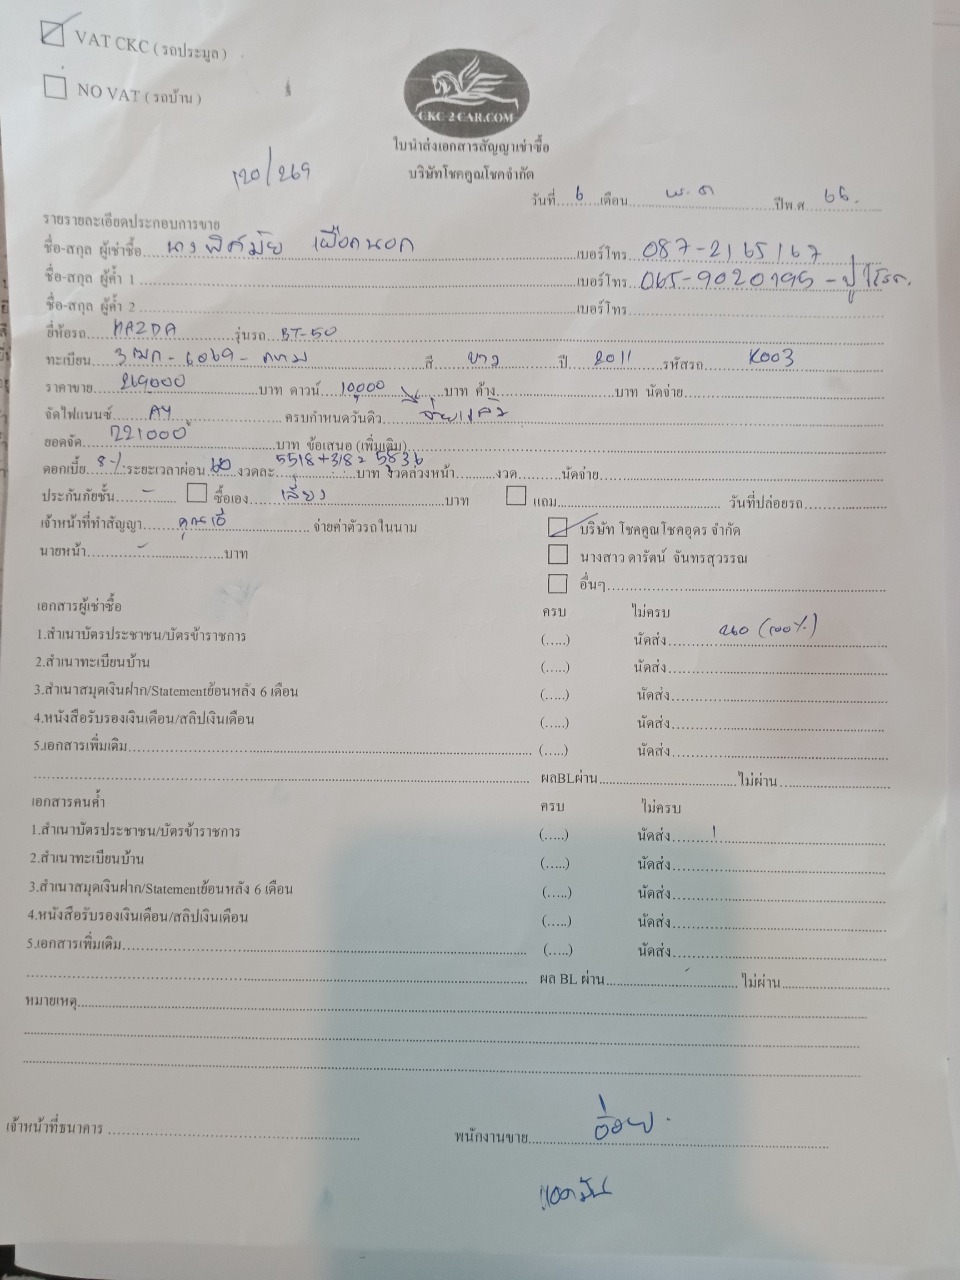 VAT CKC ( รถประมูล )
NO VAT ( รถบ้าน )
CKC-2CAR.COM
ใบนำส่งเอกสารสัญญาเช่าซื้อ
120/269
บริษัทโชคคูณโชคจำกัด
วันที่ 6 เดือน พ.ค ปีพ.ศ 66.
รายรายละเอียดประกอบการขาย
ชื่อ-สกุล ผู้เช่าซื้อ นางพิศมัย เผือดนอก เบอร์โทร 087-2165167
ชื่อ-สกุล ผู้ค้ำ 1 เบอร์โทร 065-9020195 - ปู
ชื่อ-สกุล ผู้ค้ำ 2 เบอร์โทร
ยี่ห้อรถ MAZDA รุ่นรถ BT-50
ทะเบียน สี ขาว ปี 2011 รหัสรถ K003
ราคาขาย 269000 บาท ดาวน์ 10,000 บาท ค้าง บาท นัดจ่าย
จัดไฟแนนซ์ AY ครบกำหนดวันดิว
ยอดจัด 221000 บาท ข้อเสนอ (เพิ่มเติม)
ดอกเบี้ย 8% ระยะเวลาผ่อน 60 งวดละ 5518+318=5836 บาท งวดล่วงหน้า งวด นัดจ่าย
ประกันภัยชั้น - ซื้อเอง บาท แถม วันที่ปล่อยรถ
เจ้าหน้าที่ทำสัญญา จ่ายค่าตัวรถในนาม บริษัท โชคคูณโชคอุดร จำกัด
นายหน้า - บาท นางสาว ดารัตน์ จันทรสุวรรณ
อื่นๆ
เอกสารผู้เช่าซื้อ ครบ ไม่ครบ
1.สำเนาบัตรประชาชน/บัตรข้าราชการ (.....) นัดส่ง 260 (100%)
2.สำเนาทะเบียนบ้าน (.....) นัดส่ง
3.สำเนาสมุดเงินฝาก/Statementย้อนหลัง 6 เดือน (.....) นัดส่ง
4.หนังสือรับรองเงินเดือน/สลิปเงินเดือน (.....) นัดส่ง
5.เอกสารเพิ่มเติม (.....) นัดส่ง
ผลBLผ่าน ไม่ผ่าน
เอกสารคนค้ำ ครบ ไม่ครบ
1.สำเนาบัตรประชาชน/บัตรข้าราชการ (.....) นัดส่ง
2.สำเนาทะเบียนบ้าน (.....) นัดส่ง
3.สำเนาสมุดเงินฝาก/Statementย้อนหลัง 6 เดือน (.....) นัดส่ง
4.หนังสือรับรองเงินเดือน/สลิปเงินเดือน (.....) นัดส่ง
5.เอกสารเพิ่มเติม (.....) นัดส่ง
ผล BL ผ่าน ไม่ผ่าน
หมายเหตุ
เจ้าหน้าที่ธนาคาร
พนักงานขาย อ้อย